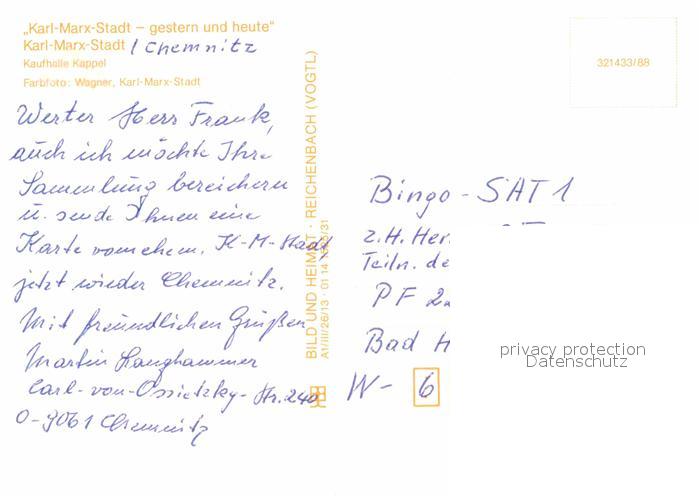 „Karl-Marx-Stadt – gestern und heute“
Karl-Marx-Stadt / Chemnitz
Kaufhalle Kappel
Farbfoto: Wagner, Karl-Marx-Stadt
Werter Herr Frank,
auch ich möchte Ihre
Sammlung bereichern
u. sende Ihnen eine
Karte vom ehem. K-M-Stadt,
jetzt wieder Chemnitz.
Mit freundlichen Grüßen
Martin Langhammer
Carl-von-Ossietzky-Str. 240
O-9061 Chemnitz
BILD UND HEIMAT · REICHENBACH (VOGTL)
A1/III/26/13 · 01 14 /31
321433/88
Bingo - SAT 1
z.H. Her
Teiln. de
PF 2
Bad H
W- 6
privacy protection
Datenschutz